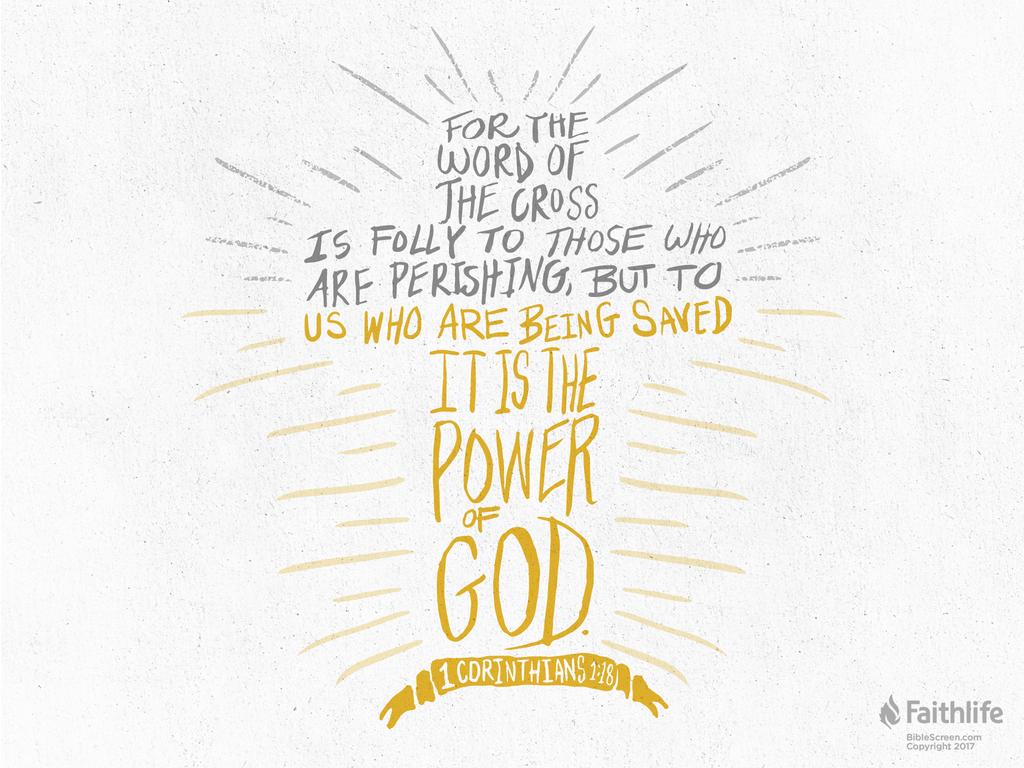 FOR THE
WORD OF
THE CROSS
IS FOLLY TO THOSE WHO
ARE PERISHING, BUT TO
US WHO ARE BEING SAVED
IT IS THE
POWER
OF
GOD.
1 CORINTHIANS 1:18
Faithlife
BibleScreen.com
Copyright 2017